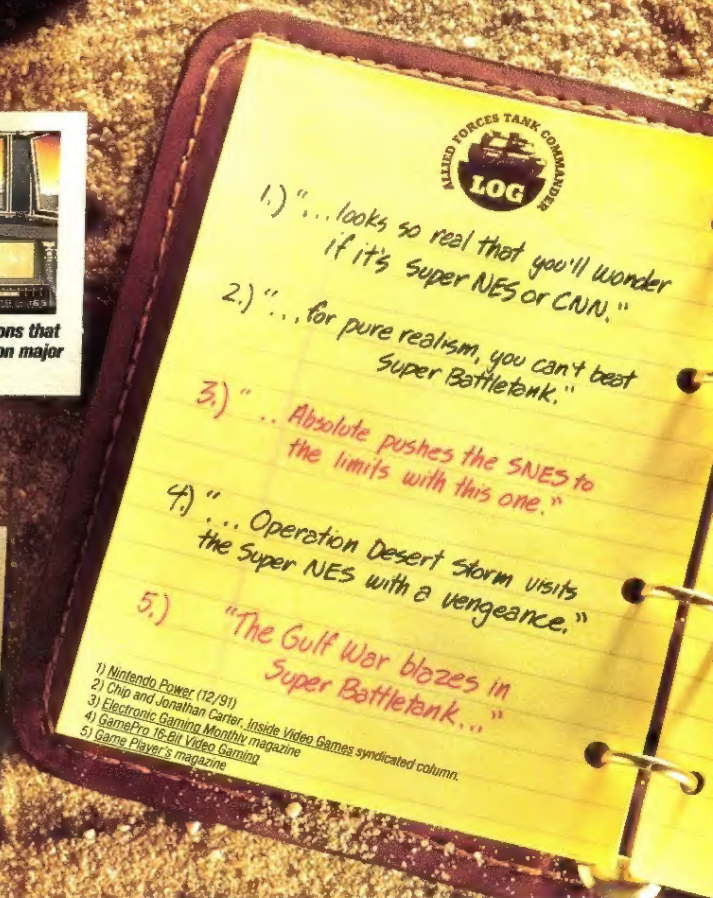 ons that
on major
ALLIED FORCES TANK COMMANDER
LOG
1.) "...looks so real that you'll wonder
if it's Super NES or CNN."
2.) "...for pure realism, you can't beat
Super Battletank."
3.) "..Absolute pushes the SNES to
the limits with this one."
4.) "...Operation Desert Storm visits
the Super NES with a vengeance."
5.) "The Gulf War blazes in
Super Battletank..."
1) Nintendo Power (12/91)
2) Chip and Jonathan Carter, Inside Video Games syndicated column.
3) Electronic Gaming Monthly magazine
4) GamePro 16-Bit Video Gaming
5) Game Player's magazine